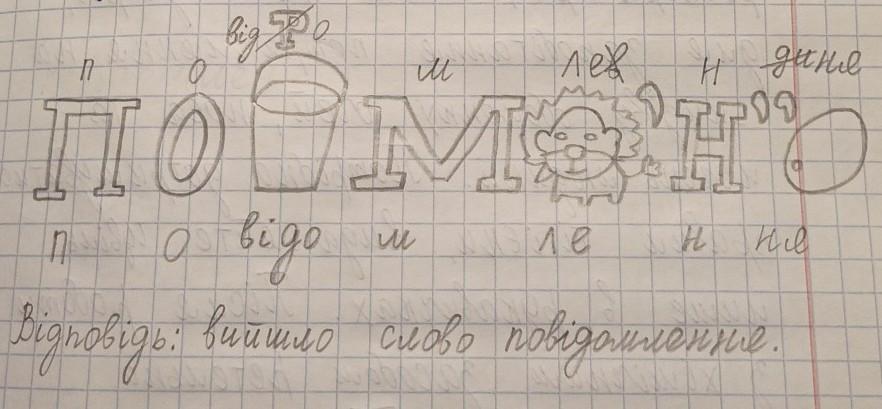 п о відРо м лев н диня
П О М ’ Н ’’
п о відо м ле н ня
Відповідь: вийшло слово повідомлення.